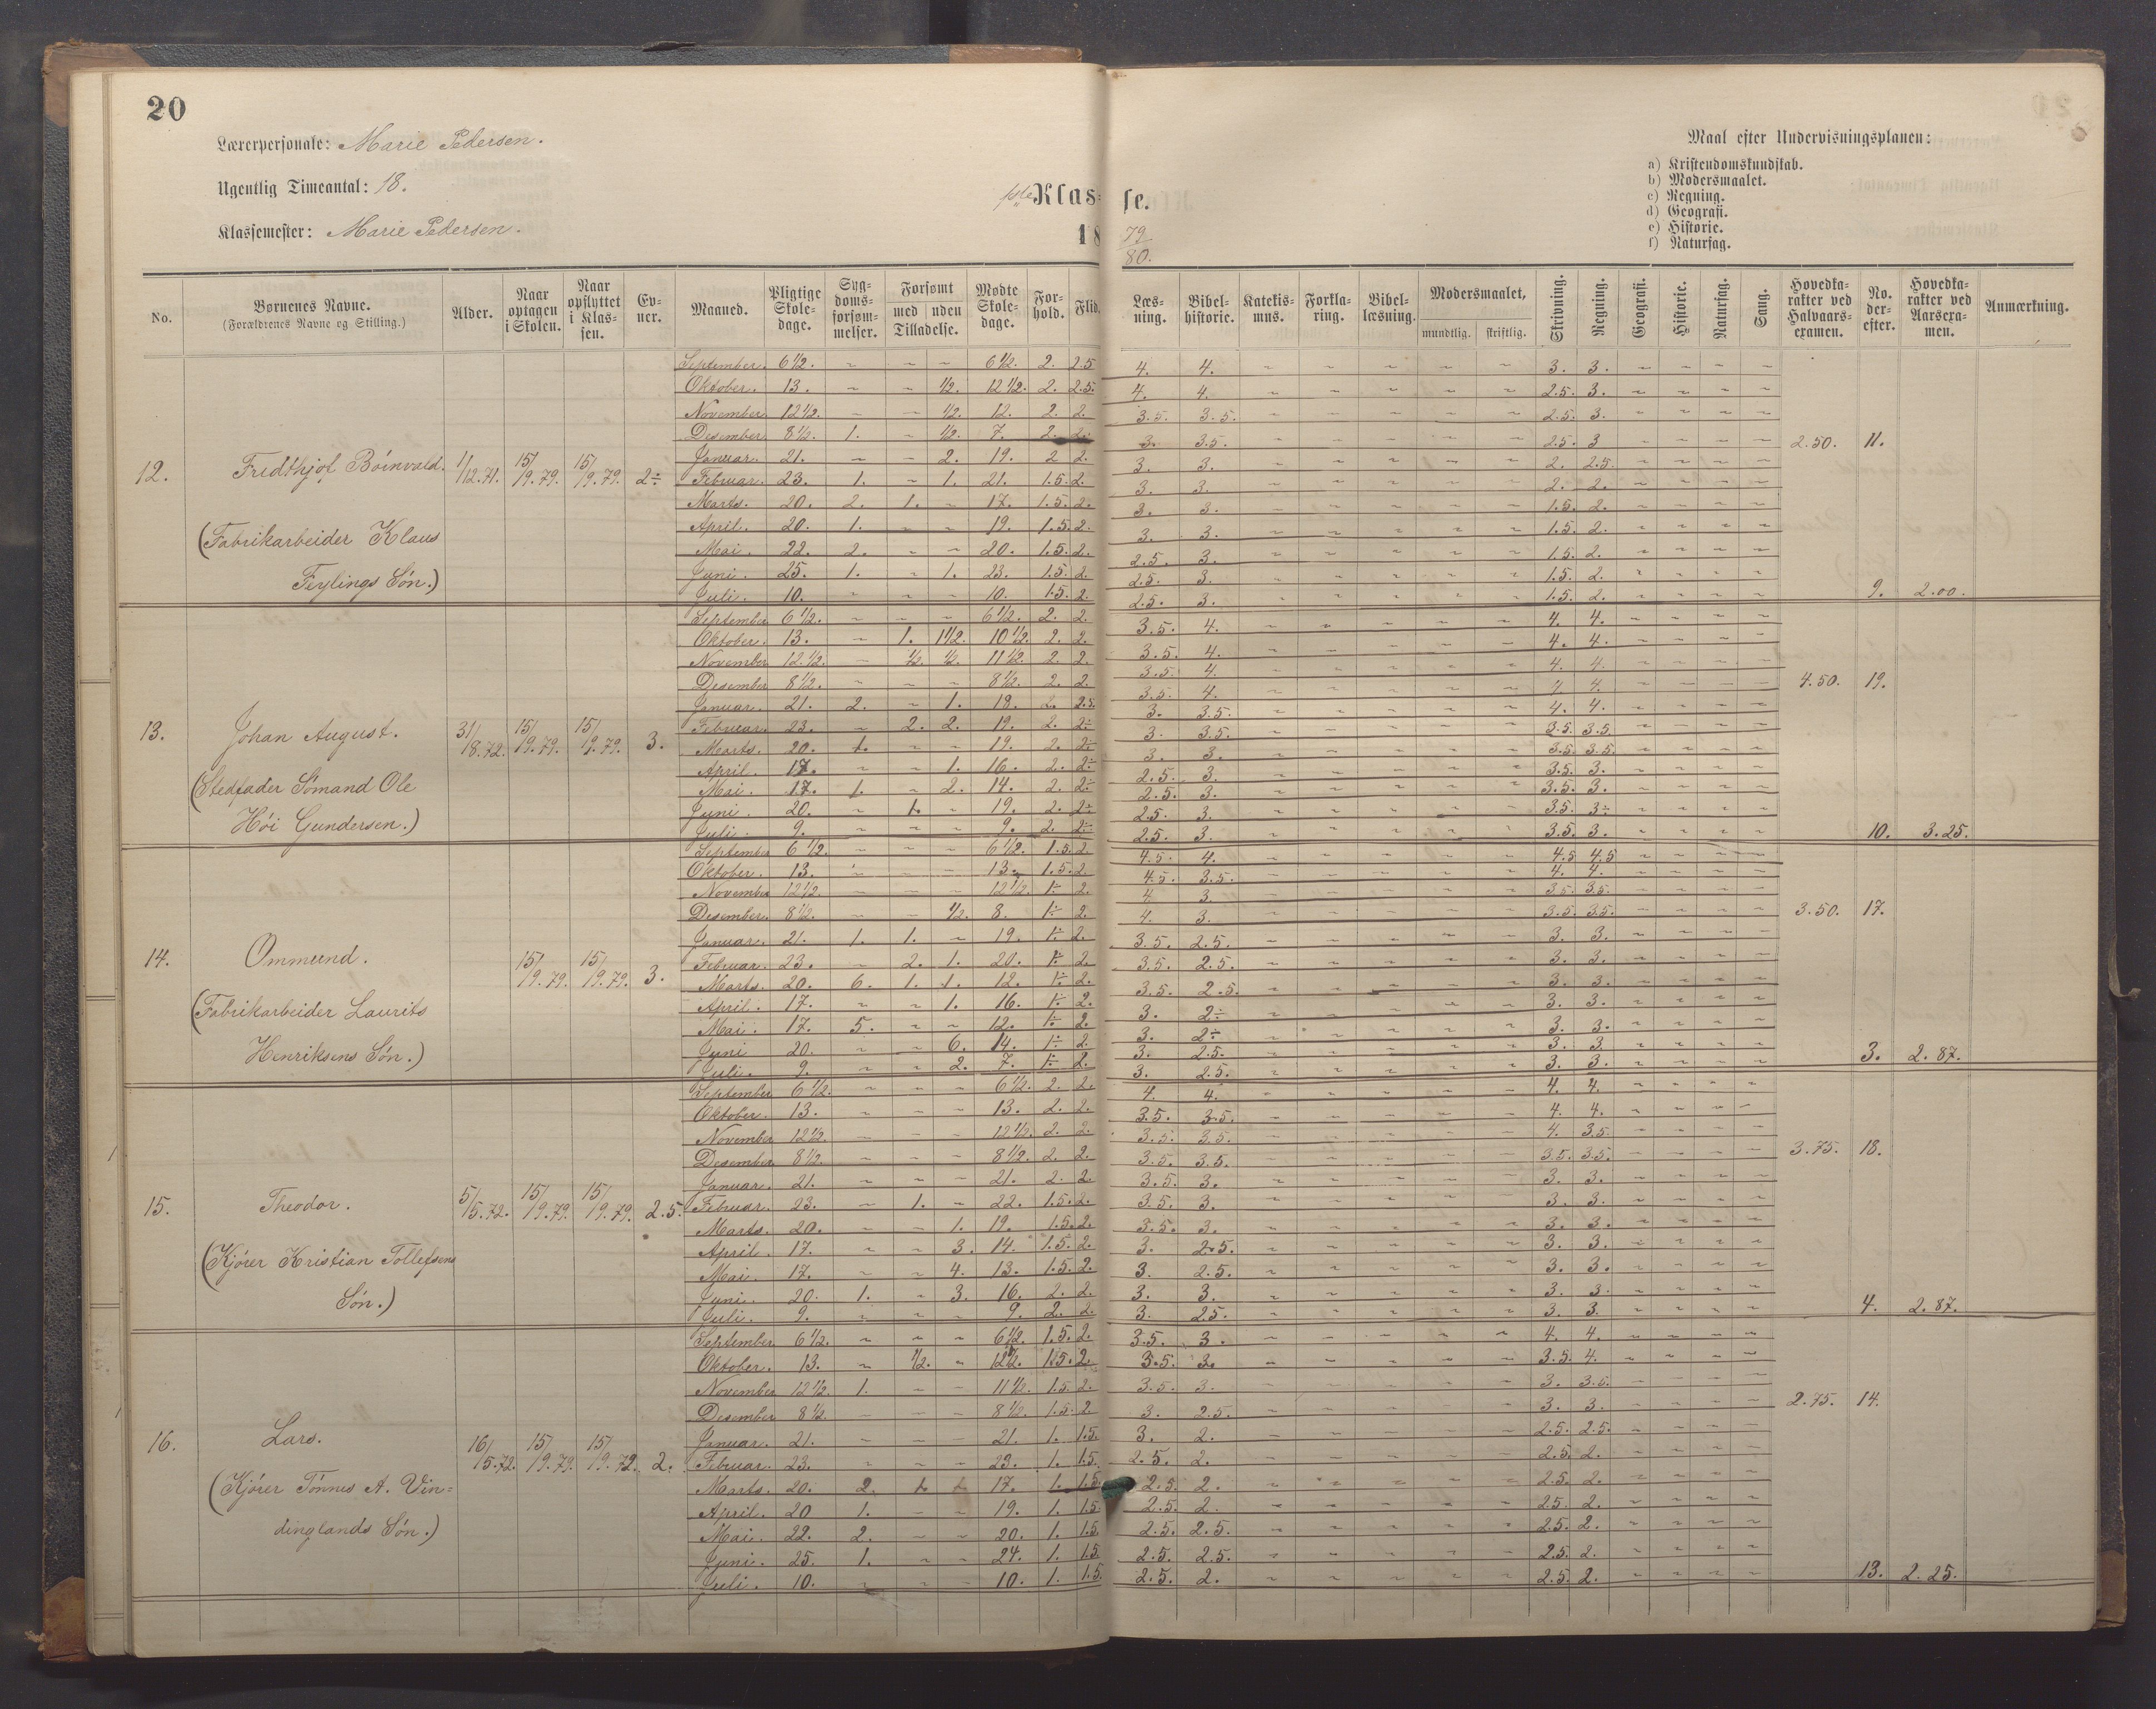 20
Lærerpersonale: Marie Pedersen.
Ugentlig Timeantal: 18.
Klassemester: Marie Pedersen.
1ste Klasse.
18 79/80.
Maal efter Undervisningsplanen:
a) Kristendomskundskab.
b) Modersmaalet.
c) Regning.
d) Geografi.
e) Historie.
f) Naturfag.
No. | Børnenes Navne. (Forældrenes Navne og Stilling.) | Alder. | Naar optagen i Skolen. | Naar opflyttet i Klassen. | Evner. | Maaned. | Pligtige Skoledage. | Sygdomsforsømmelser. | Forsømt med uden Tilladelse. | Mødte Skoledage. | Forhold. | Flid. | Læsning. | Bibelhistorie. | Katekismus. | Forklaring. | Bibellæsning. | Modersmaalet, mundtlig. skriftlig. | Skrivning. | Regning. | Geografi. | Historie. | Naturfag. | Sang. | Hovedkarakter ved Halvaarsexamen. | No. derefter. | Hovedkarakter ved Aarsexamen. | Anmærkning.
12. Fridthjof Boinvald. 1/12.71. 15/9.79. 15/9.79. 2÷
(Fabrikarbeider Klaus
Feylings Søn.)
September. 6 1/2. ~ ~ ~ 6 1/2. 2. 2.5 4. 4. 3. 3.
Oktober. 13. ~ ~ 1/2. 12 1/2. 2. 2.5. 4. 4. 2.5. 3.
November. 12 1/2. ~ ~ 1/2. 12. 2. 2. 3.5. 3.5. 2.5. 3.
Desember. 8 1/2. 1. ~ 1/2. 7. 2. 2. 3. 3.5. 2.5. 3 2.50. 11.
Januar. 21. ~ ~ 2. 19. 2 2. 3. 3. 2. 2.5.
Februar. 23. 1. ~ 1. 21. 1.5. 2. 3. 3. 2. 2.
Marts. 20. 2. 1. ~ 17. 1.5. 2. 3. 3. 1.5. 2.
April. 20. 1. ~ ~ 19. 1.5. 2. 3. 3. 1.5. 2.
Mai. 22. 2. ~ ~ 20. 1.5. 2. 2.5. 3. 1.5. 2.
Juni. 25. 1. ~ 1. 23. 1.5. 2. 2.5. 3. 1.5. 2.
Juli. 10. ~ ~ ~ 10. 1.5. 2. 2.5. 3. 1.5. 2. 9. 2.00.
13. Johan August. 31/8.72. 15/9.79. 15/9.79. 3.
(Stedfader Sømand Ole
Høi Gundersen.)
September 6 1/2. ~ ~ ~ 6 1/2. 2. 2. 3.5. 4. 4. 4.
Oktober. 13. ~ 1. 1 1/2. 10 1/2. 2. 2. 3.5. 4. 4. 4.
November 12 1/2. ~ 1/2. 1/2. 11 1/2. 2. 2. 3.5. 4. 4. 4.
Desember 8 1/2. ~ ~ ~ 8 1/2. 2. 2. 3.5. 4. 4. 4. 4.50. 19.
Januar. 21. 2. ~ 1. 18. 2. 2.5. 3. 3.5. 4. 4.
Februar. 23. ~ 2. 2. 19. 2. 2÷ 3. 3.5. 3.5. 3.5.
Marts. 20. 1. ~ ~ 19. 2. 2÷ 3. 3. 3.5. 3.5.
April. 17. ~ ~ 1. 16. 2. 2÷ 2.5. 3. 3.5. 3.
Mai. 17. 1. ~ 2. 14. 2. 2÷ 2.5. 3. 3.5. 3.
Juni. 20. ~ 1. ~ 19. 2. 2÷ 2.5. 3. 3.5. 3÷
Juli. 9. ~ ~ ~ 9. 2. 2÷ 2.5. 3. 3.5. 3. 10. 3.25.
14. Ommund. 15/9.79. 15/9.79. 3.
(Fabrikarbeider Laurits
Henriksens Søn.)
September 6 1/2. ~ ~ ~ 6 1/2. 1.5. 2 4.5. 4. 4.5 4.5
Oktober. 13. ~ ~ ~ 13. 1.5. 2. 4.5. 3.5. 4. 4.
November 12 1/2. ~ ~ ~ 12 1/2. 1÷ 2. 4. 3. 3.5. 3.5.
Desember. 8 1/2. ~ ~ 1/2. 8. 1÷ 2. 4. 3. 3.5. 3.5. 3.50. 17.
Januar. 21. 1. 1. ~ 19. 1÷ 2. 3.5. 2.5. 3. 3.
Februar. 23. ~ 2. 1. 20. 1÷ 2. 3.5. 2.5. 3. 3.
Marts. 20. 6. 1. 1. 12. 1÷ 2. 3.5. 2.5. 3. 3.
April. 17. ~ ~ 1. 16. 1÷ 2. 3. 2÷ 3. 3.
Mai. 17. 5. ~ ~ 12. 1÷ 2. 3. 2÷ 3. 3.
Juni 20. ~ ~ 6. 14. 1÷ 2. 3. 2.5. 3. 3.
Juli. 9. ~ ~ 2. 7. 1÷ 2. 3. 2.5. 3. 3. 3. 2.87.
15. Theodor. 5/5.72. 15/9.79. 15/9.79. 2.5.
(Kjører Kristian Tollefsens
Søn.)
September 6 1/2. ~ ~ ~ 6 1/2. 2. 2. 4. 4. 4. 4.
Oktober. 13. ~ ~ ~ 13. 2. 2. 3.5. 3.5. 4. 4.
November 12 1/2. ~ ~ ~ 12 1/2. 2. 2. 3.5. 3.5. 4. 3.5.
Desember 8 1/2. ~ ~ ~ 8 1/2. 2. 2. 3.5. 3.5. 3.5. 3.5. 3.75. 18.
Januar. 21. ~ ~ ~ 21. 2. 2. 3.5. 3. 3. 3.
Februar. 23. ~ 1. ~ 22. 1.5. 2. 3.5. 3. 3. 3.
Marts. 20. ~ ~ 1. 19. 1.5. 2. 3.5. 3. 3. 3.
April. 17. ~ ~ 3. 14. 1.5. 2. 3. 2.5. 3. 3.
Mai. 17. ~ ~ 4. 13. 1.5. 2. 3. 2.5. 3. 3.
Juni. 20. 1. ~ 3. 16. 2. 2. 3. 3. 3. 3.
Juli. 9. ~ ~ ~ 9. 2. 2. 3. 2.5. 3. 3. 4. 2.87.
16. Lars. 16/5.72. 15/9.79. 15/9.79. 2.
(Kjører Tønnes A. Vin=
dinglands Søn.)
September 6 1/2. ~ ~ ~ 6 1/2. 1.5. 2. 3.5. 3. 4. 4.
Oktober. 13. ~ 1/2. ~ 12 1/2. 1.5. 2. 3.5. 3. 3.5. 4.
November 12 1/2. 1. ~ ~ 11 1/2. 1.5. 2. 3.5. 3. 3. 3.5.
Desember 8 1/2. ~ ~ ~ 8 1/2. 1.5. 2. 3. 2.5. 3. 3. 2.75. 14.
Januar. 21. ~ ~ ~ 21. 1. 1.5. 3. 2. 2.5. 2.5.
Februar. 23. ~ ~ ~ 23. 1. 1.5. 2.5. 2. 2.5. 2.
Marts. 20. 2. 1. ~ 17. 1. 1.5. 2.5. 2. 2.5. 2.
April. 20 1. ~ ~ 19. 1. 1.5. 2.5. 2. 2.5. 2.
Mai. 22. 2. ~ ~ 20. 1. 1.5. 2.5. 2.5. 2.5. 2.
Juni. 25. 1. ~ ~ 24. 1. 1.5. 2.5. 2.5. 2.5. 2.
Juli. 10. ~ ~ ~ 10. 1. 1.5. 2.5. 2. 2.5. 2. 13. 2.25.